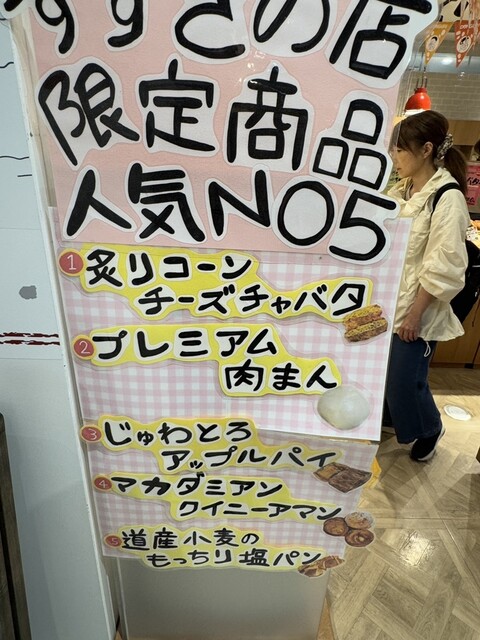 すすきの店
限定商品
人気NO5
1 炙りコーン
チーズチャバタ
2 プレミアム
肉まん
3 じゅわとろ
アップルパイ
4 マカダミアン
クイニーアマン
5 道産小麦の
もっちり塩パン